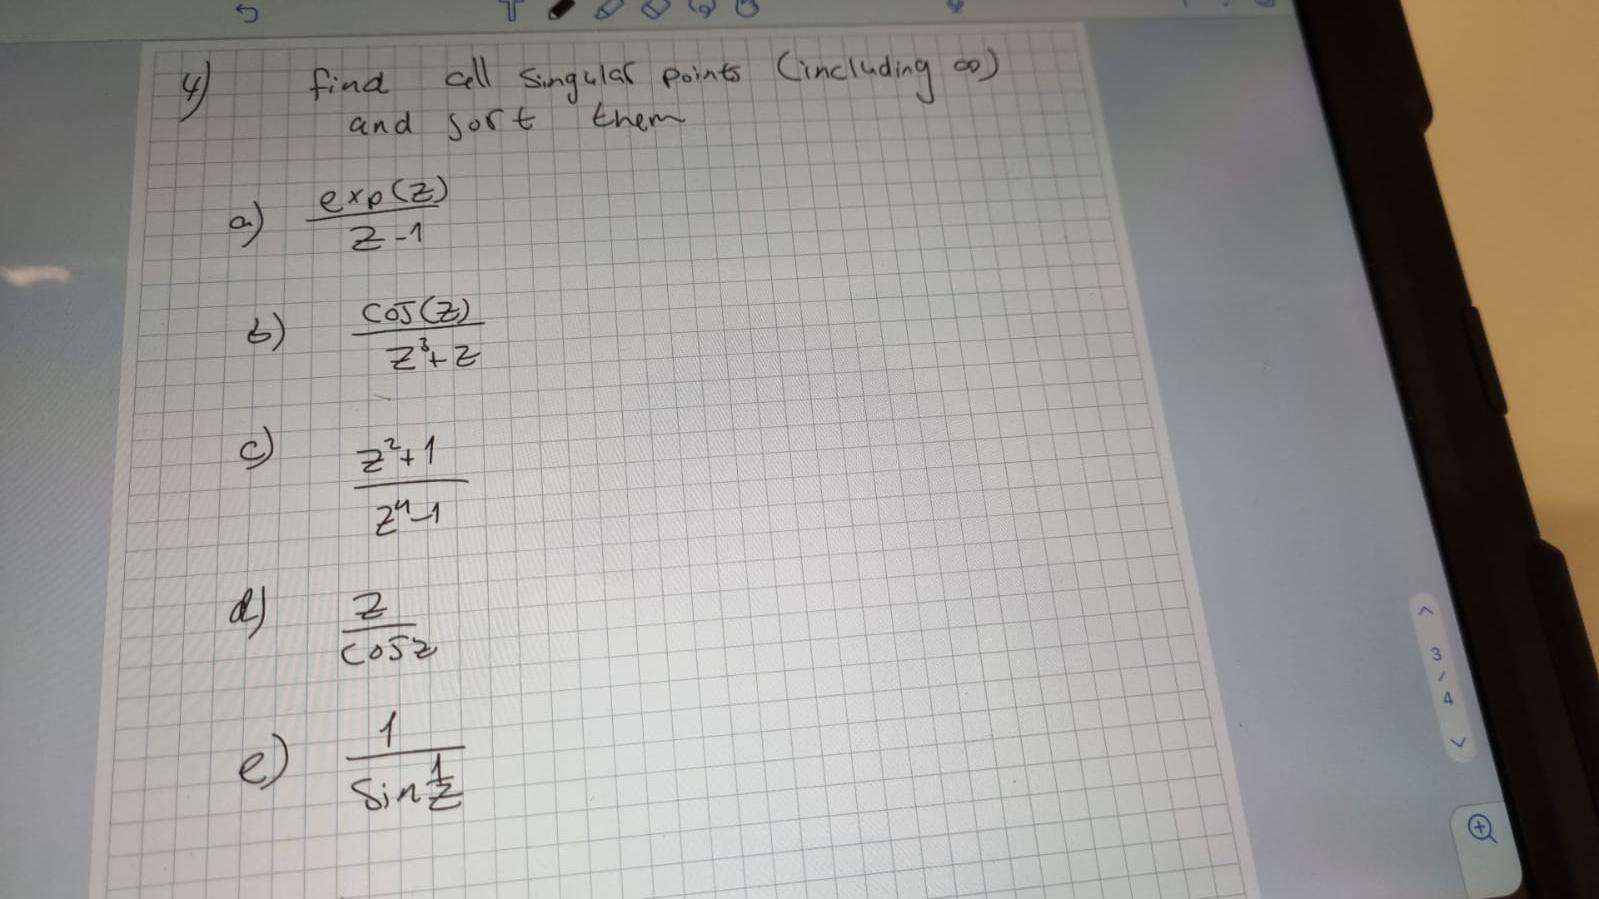 4) find all singular points (including ∞)
and sort them
a) exp(z) / z-1
b) cos(z) / z³+z
c) z²+1 / z⁴-1
d) z / cosz
e) 1 / sin 1/z
3 / 4